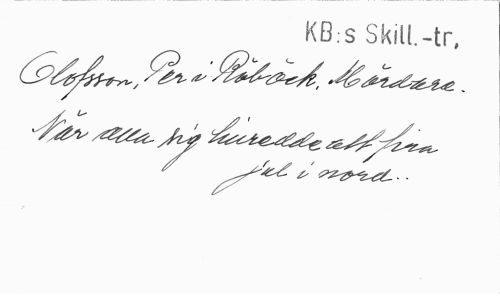 KB:s Skill.-tr.
Olofsson, Per i Röbäck. Mördare.
När alla sig hiredde att fira
jul i nord..